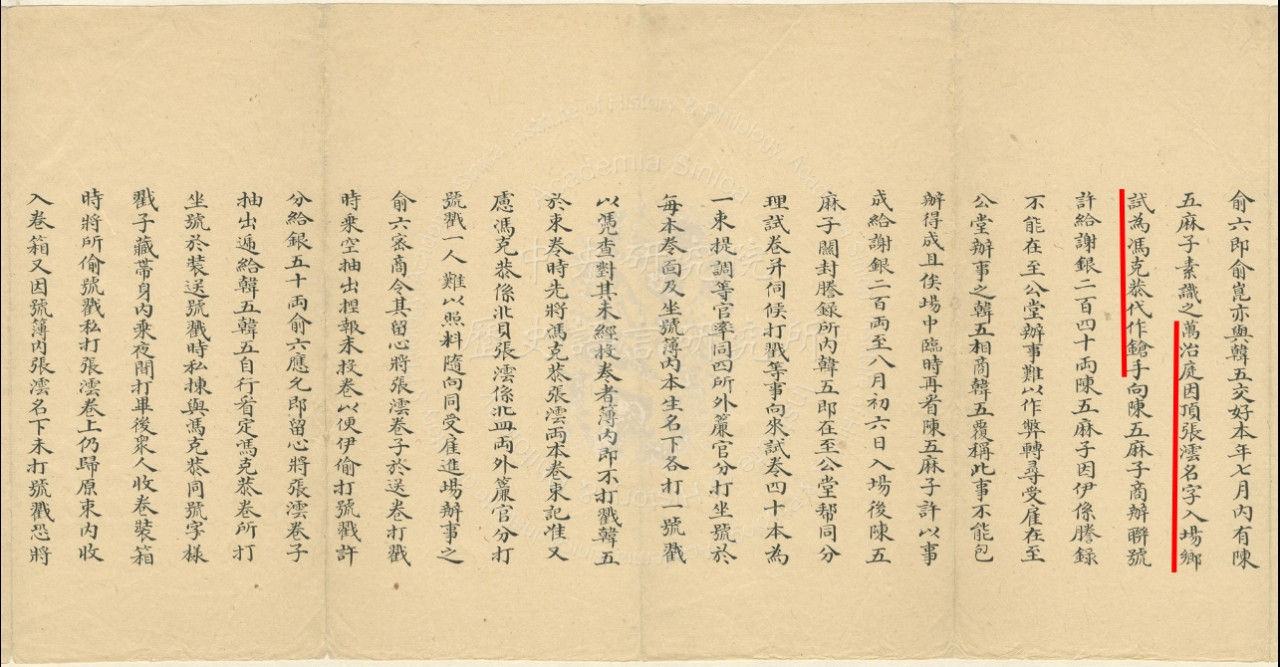 俞六即俞崑亦與韓五交好本年七月內有陳
五麻子素識之萬治庭因頂張澐名字入場鄉
試為馮克恭代作鎗手向陳五麻子商辦聯號
許給謝銀二百四十両陳五麻子因伊係謄錄
不能在至公堂辦事難以作弊轉尋受雇在至
公堂辦事之韓五相商韓五覆稱此事不能包
辦得成且俟場中臨時再看陳五麻子許以事
成給謝銀二百両至八月初六日入場後陳五
麻子關封謄錄所內韓五即在至公堂帮同分
理試卷并伺候打戳等事向來試卷四十本為
一束提調等官率同四所外簾官分打坐號於
每本卷面及坐號簿內本生名下各打一號戳
以凭查對其未經投卷者簿內即不打戳韓五
於束卷時先將馮克恭張澐両本卷束記准又
慮馮克恭係北貝張澐係北皿両外簾官分打
號戳一人難以照料隨向同受雇進場辦事之
俞六密商令其留心將張澐卷子於送卷打戳
時乘空抽出捏報未投卷以便伊偷打號戳許
分給銀五十両俞六應允即留心將張澐卷子
抽出遞給韓五韓五自行看定馮克恭卷所打
坐號於裝送號戳時私揀與馮克恭同號字樣
戳子藏帯身內乘夜間打畢後衆人收卷裝箱
時將所偷號戳私打張澐卷上仍歸原束內收
入卷箱又因號簿內張澐名下未打號戳恐將
中央研究院
歷史語言研究所
Academia Sinica